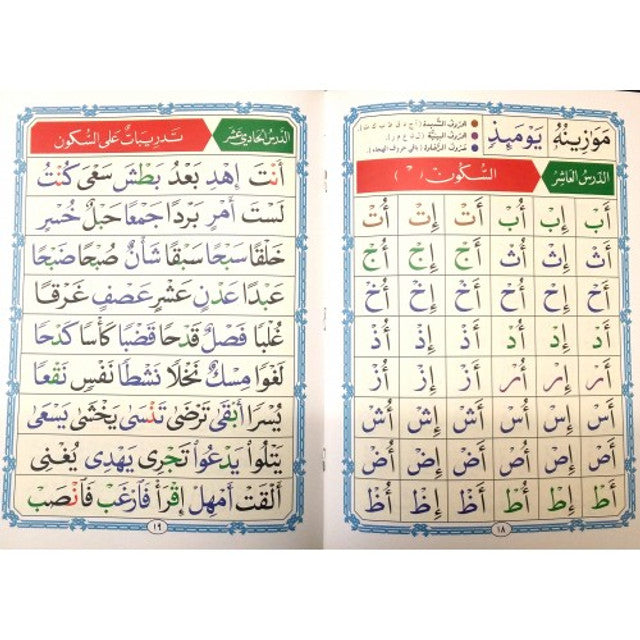 مَوَازِينُهُ يَوْمَئِذٍ
الدَّرْسُ العَاشِرُ السُّكُونُ ( ْ )
أَبْ إِبْ أُبْ أَتْ إِتْ أُتْ
أَثْ إِثْ أُثْ أَجْ إِجْ أُجْ
أَحْ إِحْ أُحْ أَخْ إِخْ أُخْ
أَدْ إِدْ أُدْ أَذْ إِذْ أُذْ
أَرْ إِرْ أُرْ أَزْ إِزْ أُزْ
أَسْ إِسْ أُسْ أَشْ إِشْ أُشْ
أَصْ إِصْ أُصْ أَضْ إِضْ أُضْ
أَطْ إِطْ أُطْ أَظْ إِظْ أُظْ
١٨
الدَّرْسُ الحَادِي عَشَرَ تَدْرِيبَاتٌ عَلَى السُّكُونِ
أَنْتَ إِهْدِ بَعْدُ بَطْشَ سَعْىَ كُنْتُ
لَسْتَ أَمْرٍ بَرْدًا جَمْعًا حَبْلٌ خُسْرٍ
خَلْقًا سَبْحًا سَبْقًا شَأْنٌ صُبْحًا ضَبْحًا
عَبْدًا عَدْنٍ عَشْرٍ عَصْفٍ غَرْقًا
غُلْبًا فَصْلٌ قَدْحًا قَضْبًا كَأْسًا كَدْحًا
لَغْوًا مِسْكٌ نَخْلًا نَشْطًا نَفْسٍ نَقْعًا
يُسْرًا أَبْقَى تَرْضَى تَنْسَى يَخْشَى يَسْعَى
يَتْلُوا يَدْعُوا تَجْرِى يَهْدِى يُغْنِى
أَلْقَتْ أَمْهِلْ إِقْرَأْ فَارْغَبْ فَانْصَبْ
١٩